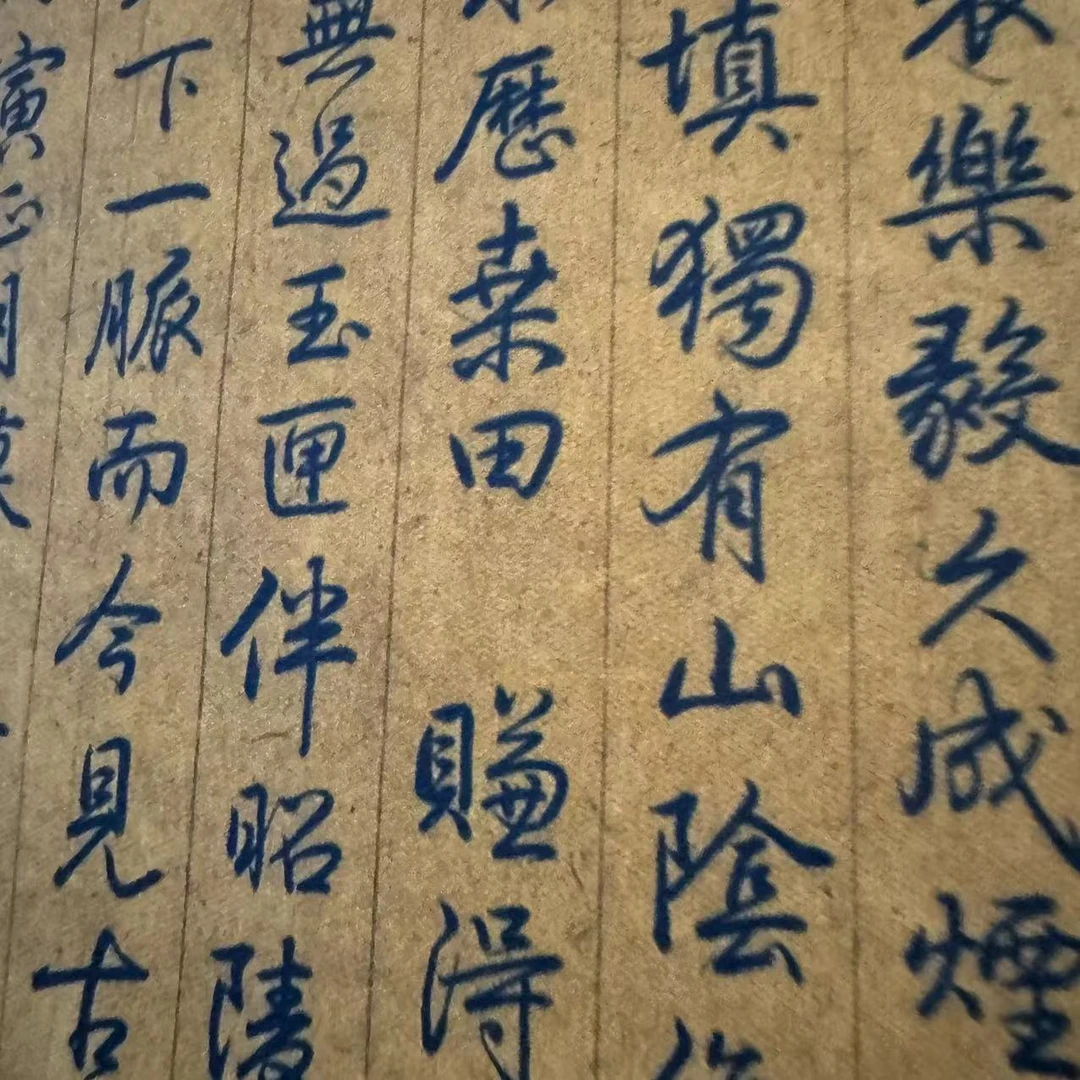 樂毅久成煙
填獨有山陰
歷桒田 賺得
無過玉匣伴昭陵
下一脈而今見古
寅正月